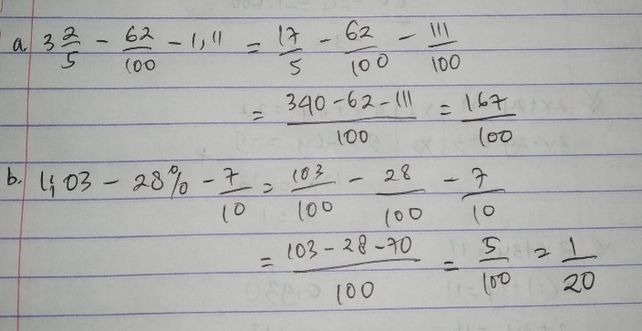 a. 3 2/5 - 62/100 - 1,11 = 17/5 - 62/100 - 111/100
= (340 - 62 - 111)/100 = 167/100
b. 1,03 - 28% - 7/10 = 103/100 - 28/100 - 7/10
= (103 - 28 - 70)/100 = 5/100 = 1/20